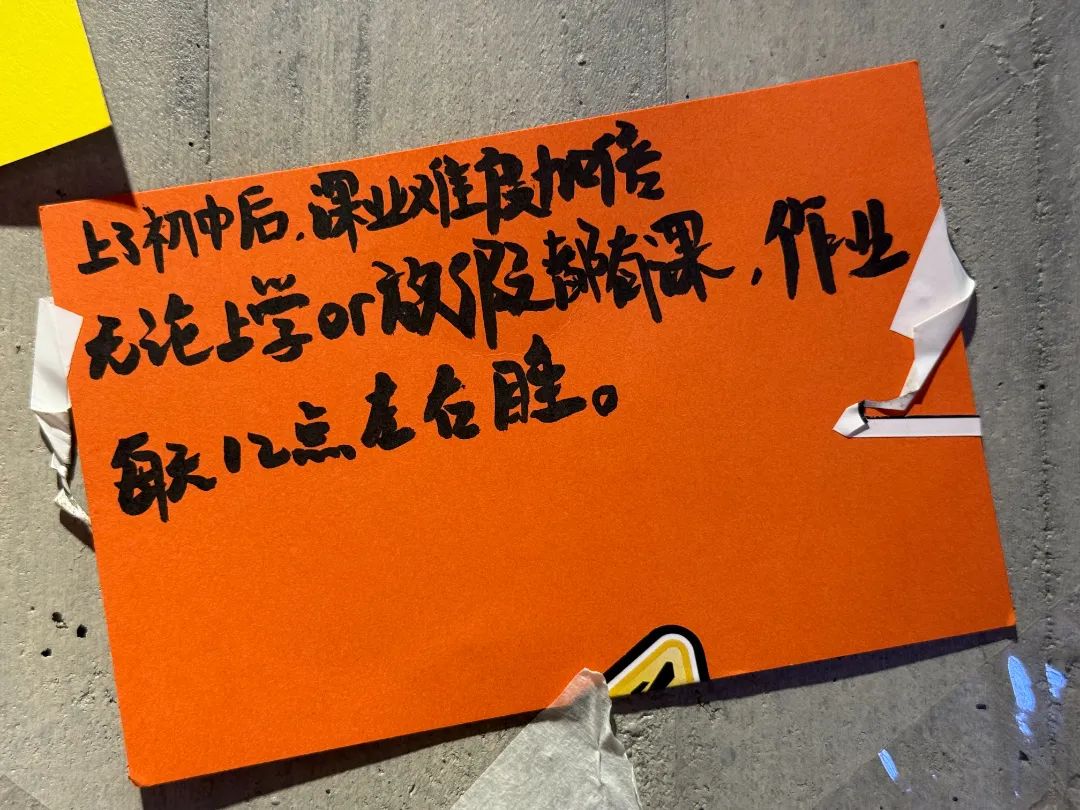 上了初中后,课业难度加倍
无论上学or放假都有课,作业
每天12点左右睡。